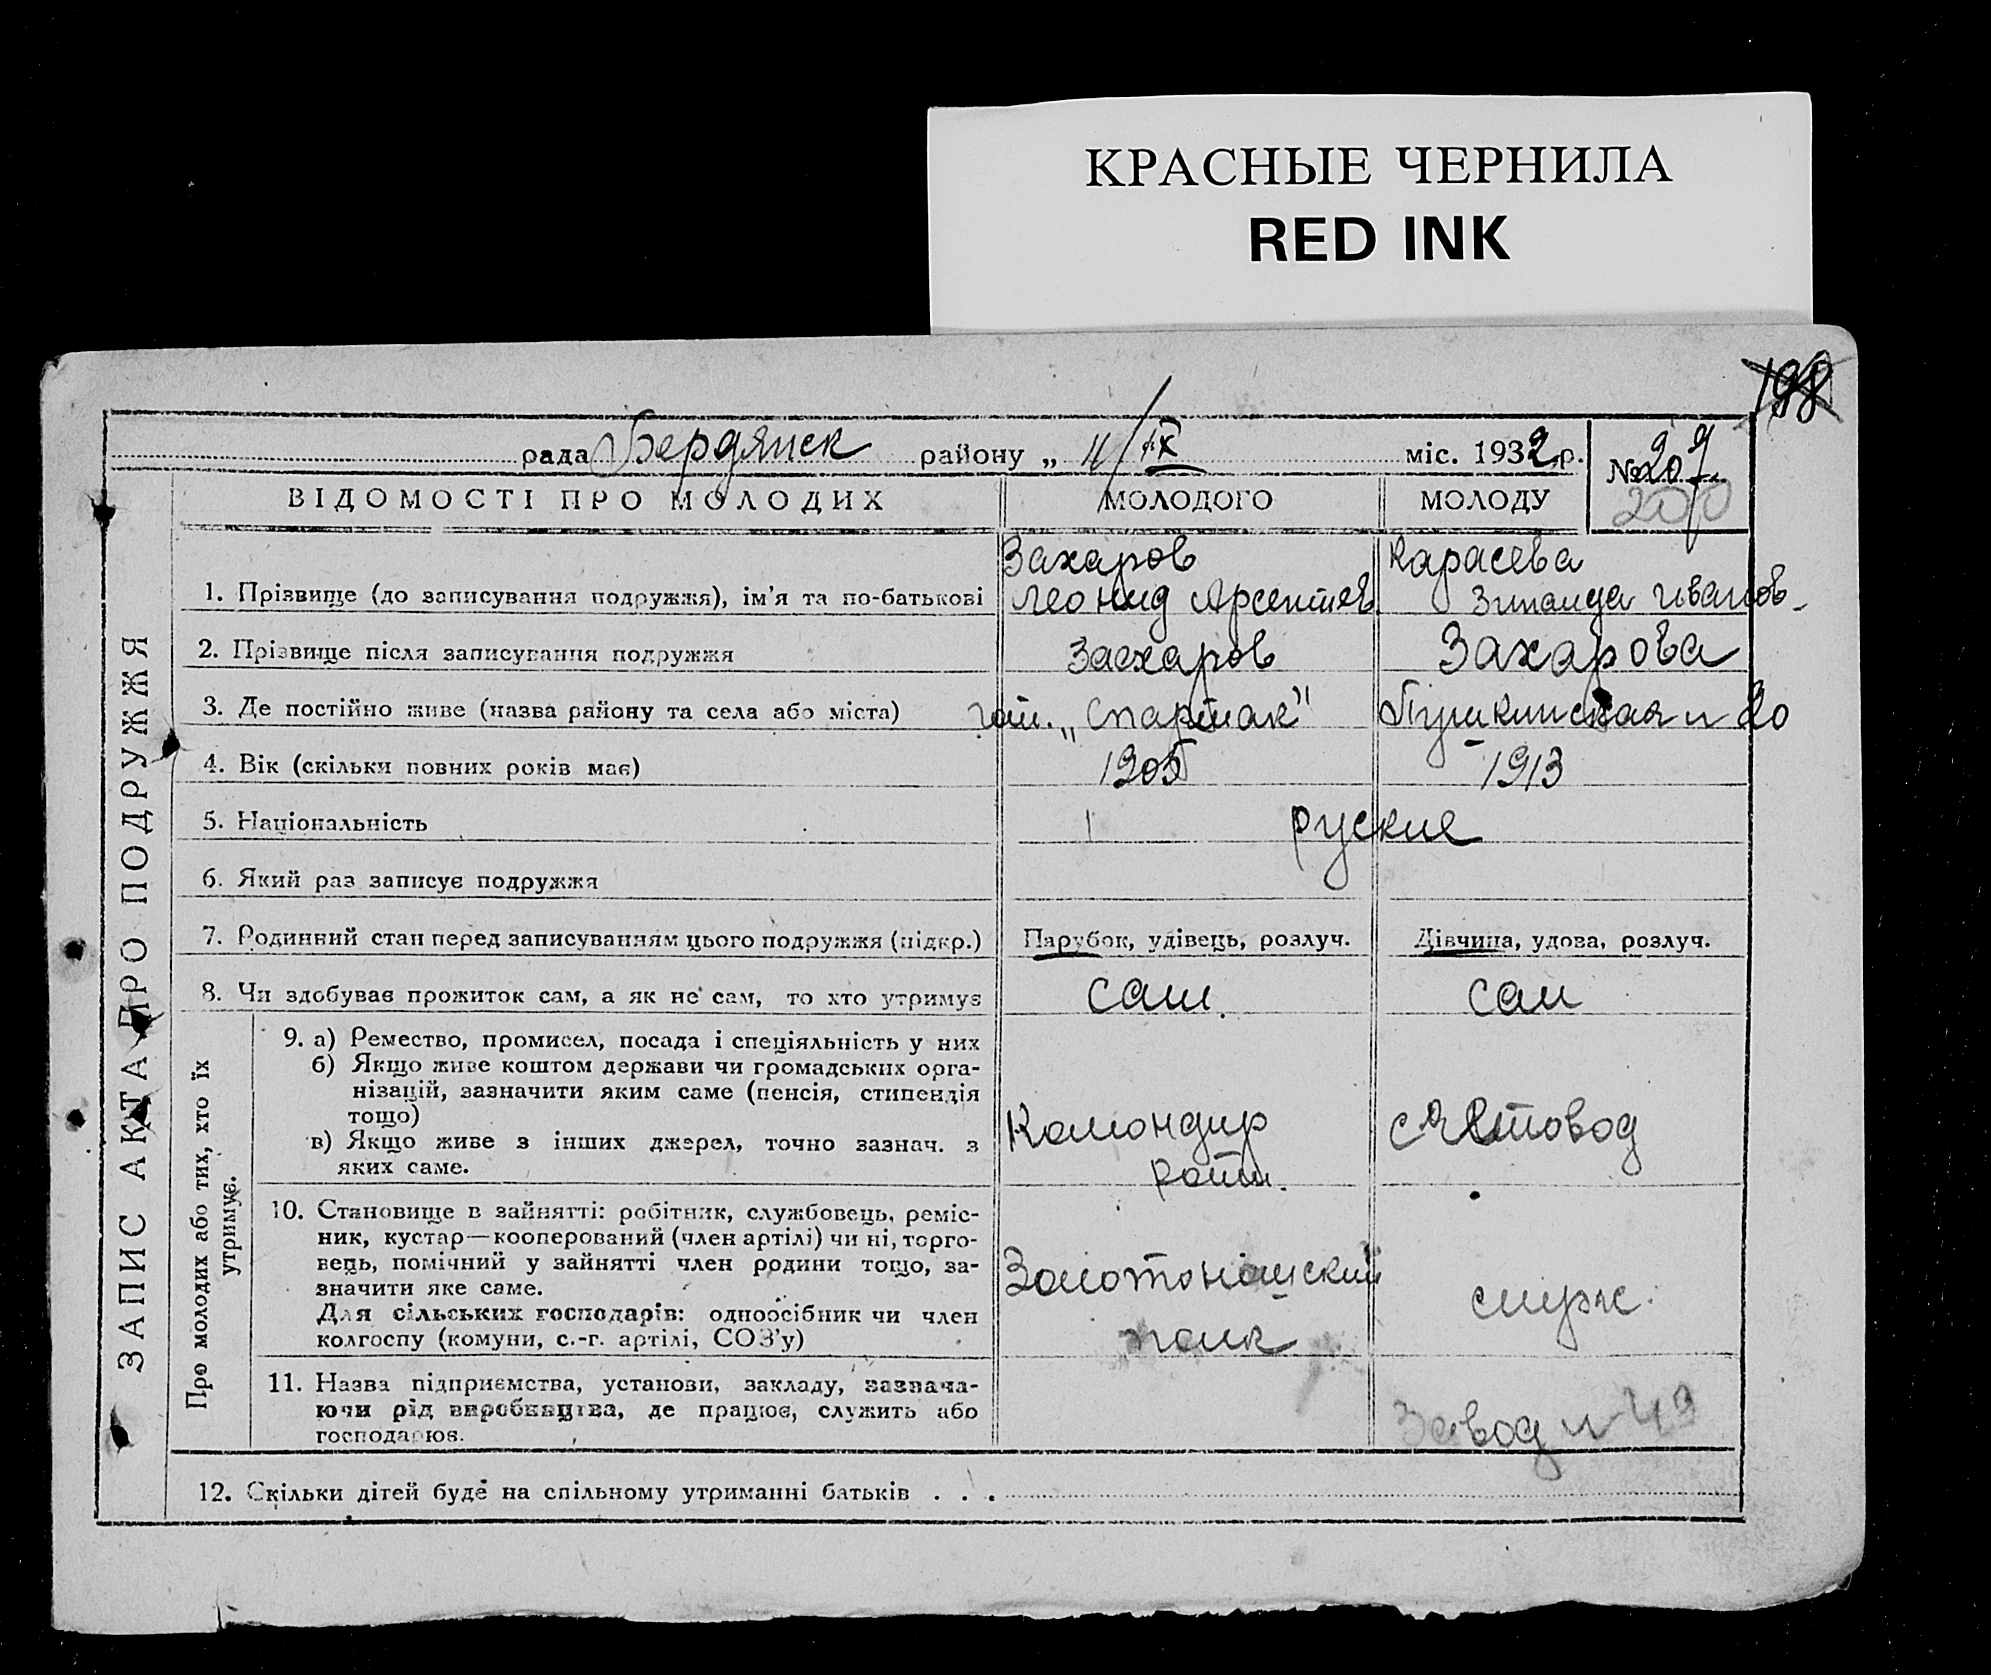 КРАСНЫЕ ЧЕРНИЛА
RED INK
198
рада Бердянск району „ 11/IX міс. 1932 р. № 207
ВІДОМОСТІ ПРО МОЛОДИХ МОЛОДОГО МОЛОДУ
ЗАПИС АКТА ПРО ПОДРУЖЖЯ
Захаров Карасева
1. Прізвище (до записування подружжя), ім'я та по-батькові Леонид Арсентьев Зинаида Иванов-
2. Прізвище після записування подружжя Захаров Захарова
3. Де постійно живе (назва району та села або міста) „Спартак" Пушкинская н 20
4. Вік (скільки повних років має) 1905 1913
5. Національність руские
6. Який раз записує подружжя
7. Родинний стан перед записуванням цього подружжя (підкр.) Парубок, удівець, розлуч. Дівчина, удова, розлуч.
8. Чи здобуває прожиток сам, а як не сам, то хто утримує сам. сам
Про молодих або тих, хто їх
утримує.
9. а) Ремество, промисел, посада і специяльність у них
б) Якщо живе коштом держави чи громадських орга-
нізацій, зазначити яким саме (пенсія, стипендія
тощо)
в) Якщо живе з інших джерел, точно зазнач. з
яких саме.
Командир
роти.
счетовод
10. Становище в зайнятті: робітник, службовець, реміс-
ник, кустар—кооперований (член артілі) чи ні, торго-
вець, помічний у зайнятті член родини тощо, за-
значити яке саме.
Для сільських господарів: одноосібник чи член
колгоспу (комуни, с.-г. артілі, СОЗ'у)
Золотоношский
полк
служ.
11. Назва підприємства, установи, закладу, зазнача-
ючи рід виробництва, де працює, служить або
господарює.
Завод н 43
12. Скільки дітей буде на спільному утриманні батьків . . .